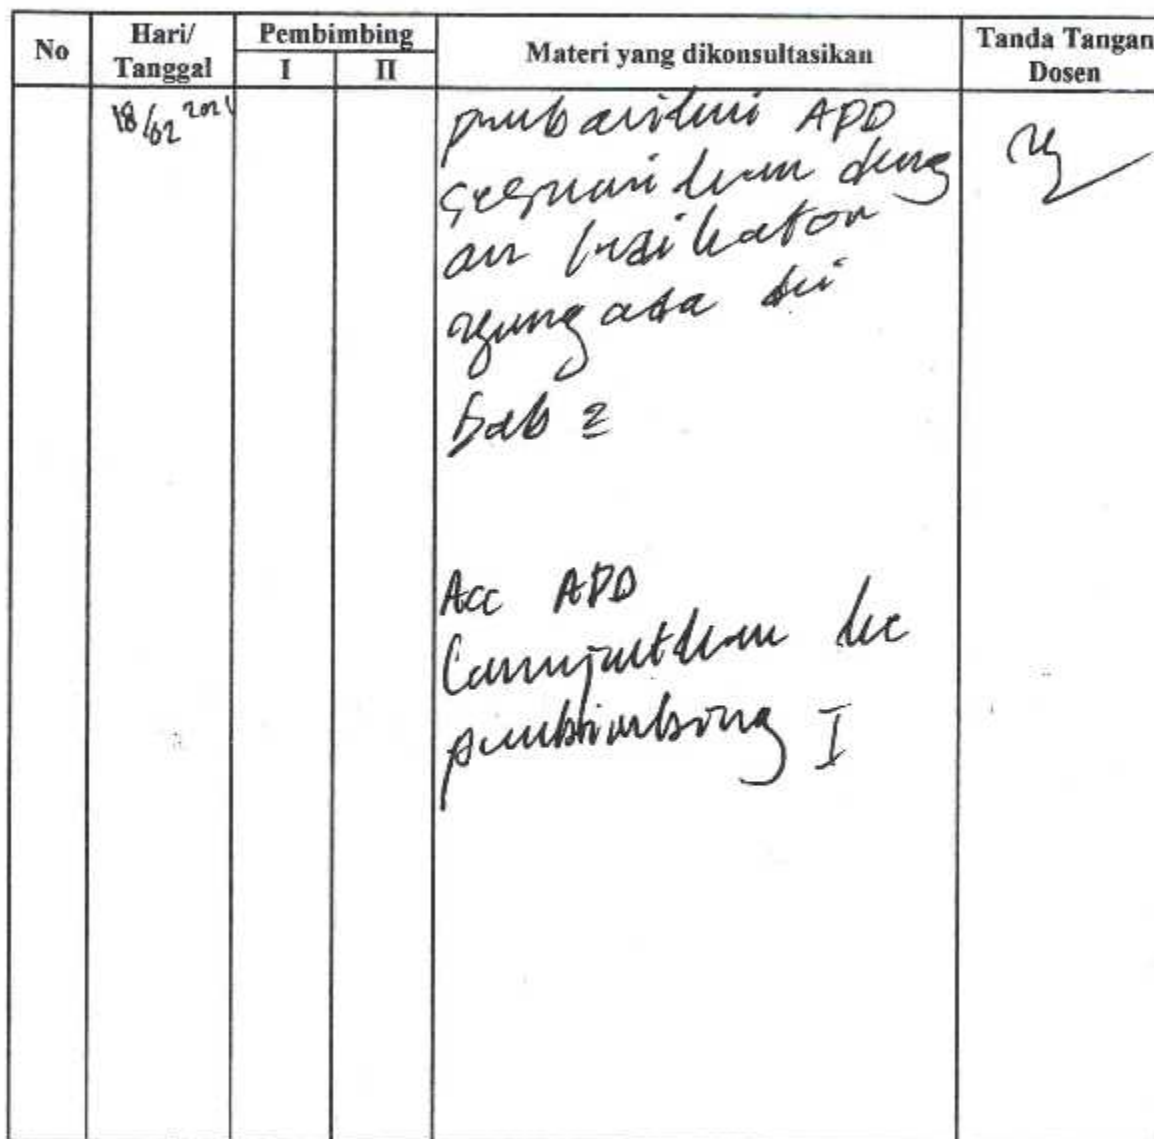 No
Hari/
Tanggal
Pembimbing
I
II
Materi yang dikonsultasikan
Tanda Tangan
Dosen
18/02 2021
perbaiki APD
sesuaikan deng
an indikator
yang ada di
bab 2
Acc APD
Lanjutkan ke
pembimbing I